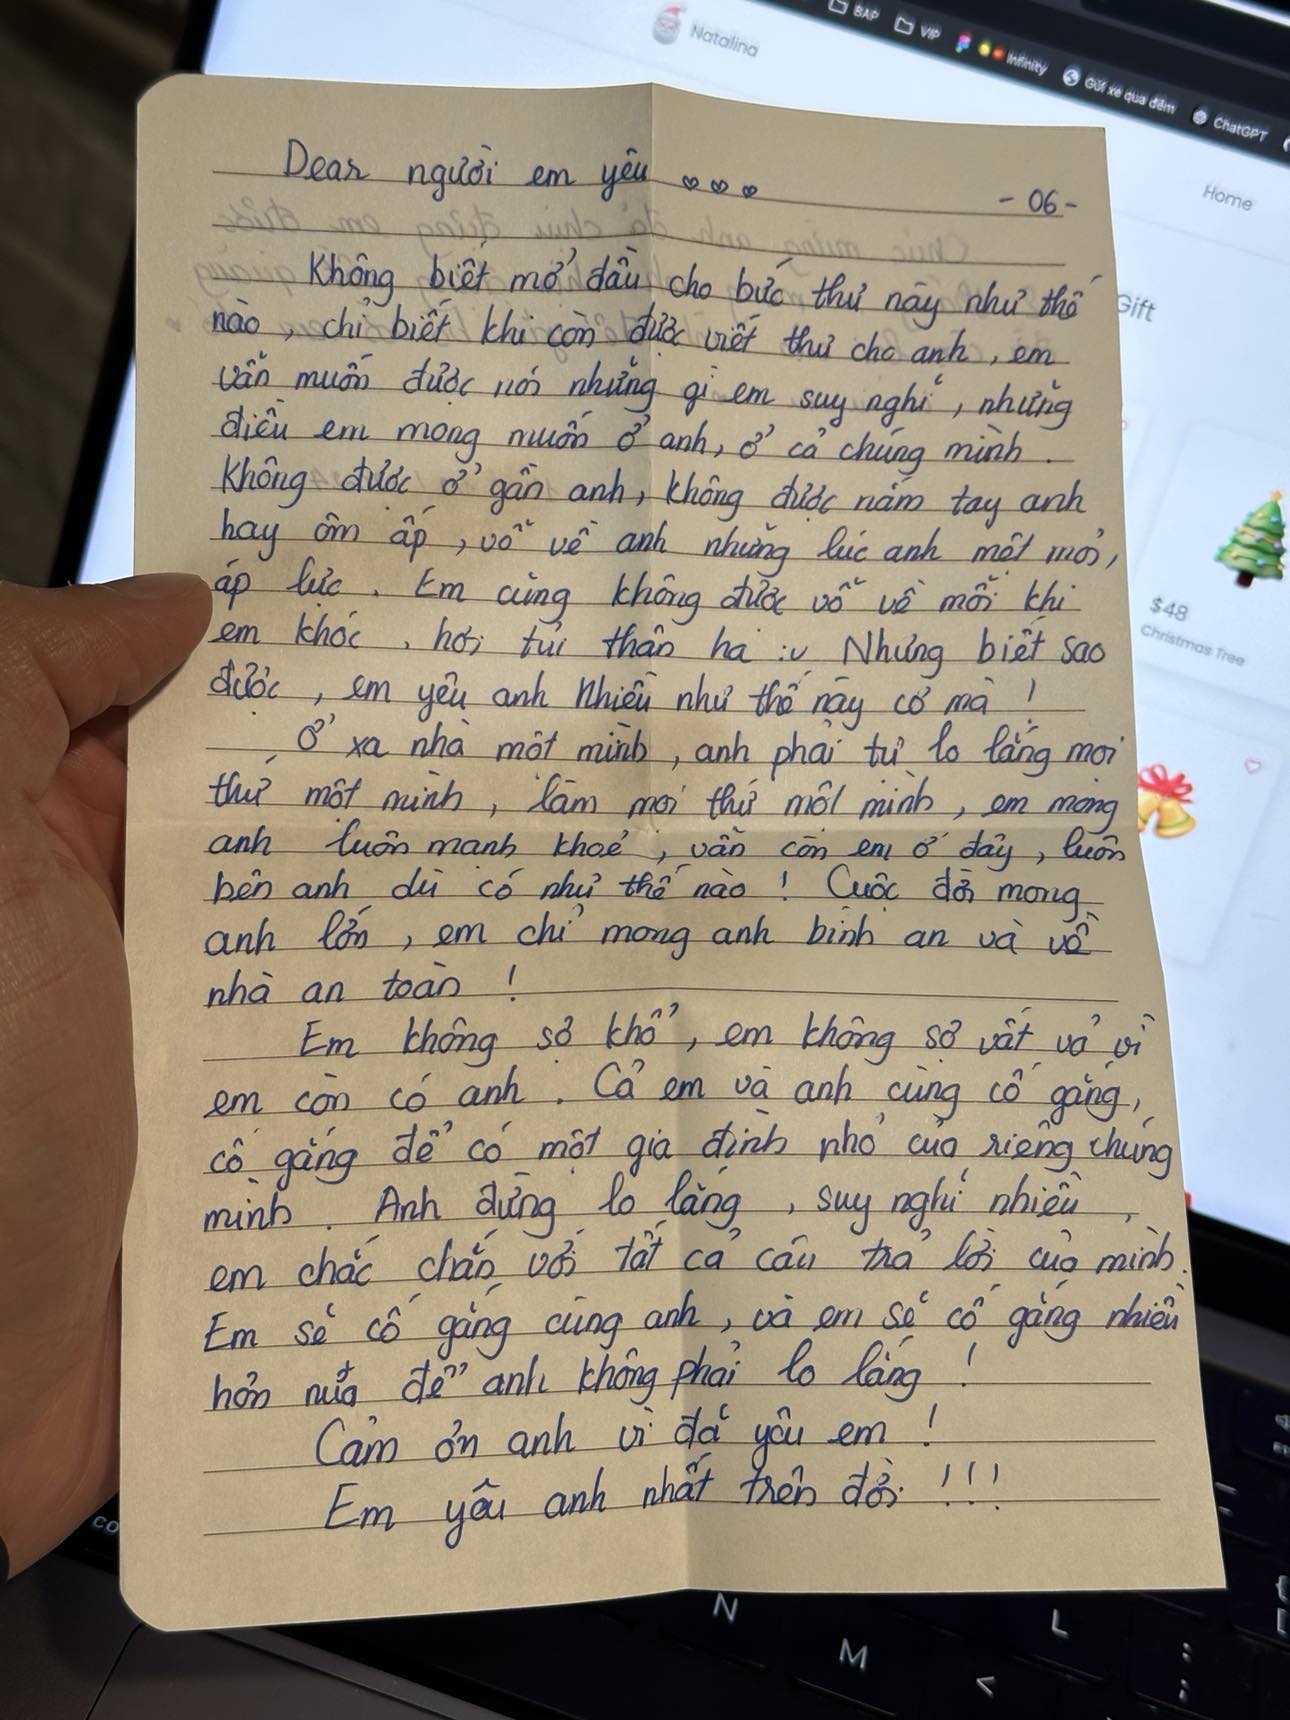 BAP
VIP
Infinity
Gửi xe qua đêm
ChatGPT
Natalina
Home
Gift
$48
Christmas Tree
Dear người em yêu ♡♡♡
- 06 -
Không biết mở đầu cho bức thư này như thế
nào, chỉ biết khi còn được viết thư cho anh, em
vẫn muốn được nói những gì em suy nghĩ, những
điều em mong muốn ở anh, ở cả chúng mình.
Không được ở gần anh, không được nắm tay anh
hay ôm ấp, vỗ về anh những lúc anh mệt mỏi,
áp lực. Em cũng không được vỗ về mỗi khi
em khóc, hơi tủi thân ha :v Nhưng biết sao
được, em yêu anh nhiều như thế này cơ mà !
Ở xa nhà một mình, anh phải tự lo lắng mọi
thứ một mình, làm mọi thứ một mình, em mong
anh luôn mạnh khoẻ, vẫn còn em ở đây, luôn
bên anh dù có như thế nào ! Cuộc đời mong
anh lớn, em chỉ mong anh bình an và về
nhà an toàn !
Em không sợ khổ, em không sợ vất vả vì
em còn có anh. Cả em và anh cùng cố gắng,
cố gắng để có một gia đình nhỏ của riêng chúng
mình. Anh đừng lo lắng, suy nghĩ nhiều,
em chắc chắn với tất cả câu trả lời của mình.
Em sẽ cố gắng cùng anh, và em sẽ cố gắng nhiều
hơn nữa để anh không phải lo lắng !
Cảm ơn anh vì đã yêu em !
Em yêu anh nhất trên đời !!!
N
M
L
<
:
;